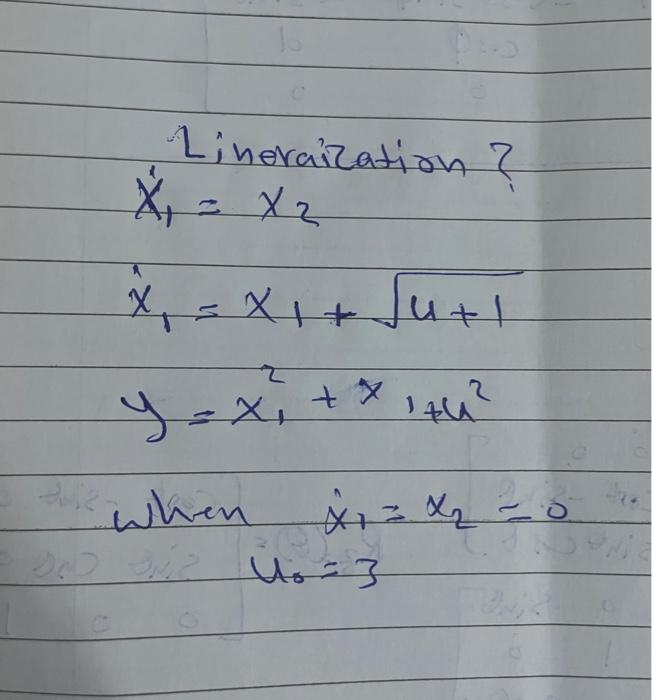 Lineraization?
ẋ₁ = x₂
ẋ₁ = x₁ + √(u+1)
y = x₁² + x₁ + u²
when ẋ₁ = x₂ = 0
u₀ = 3